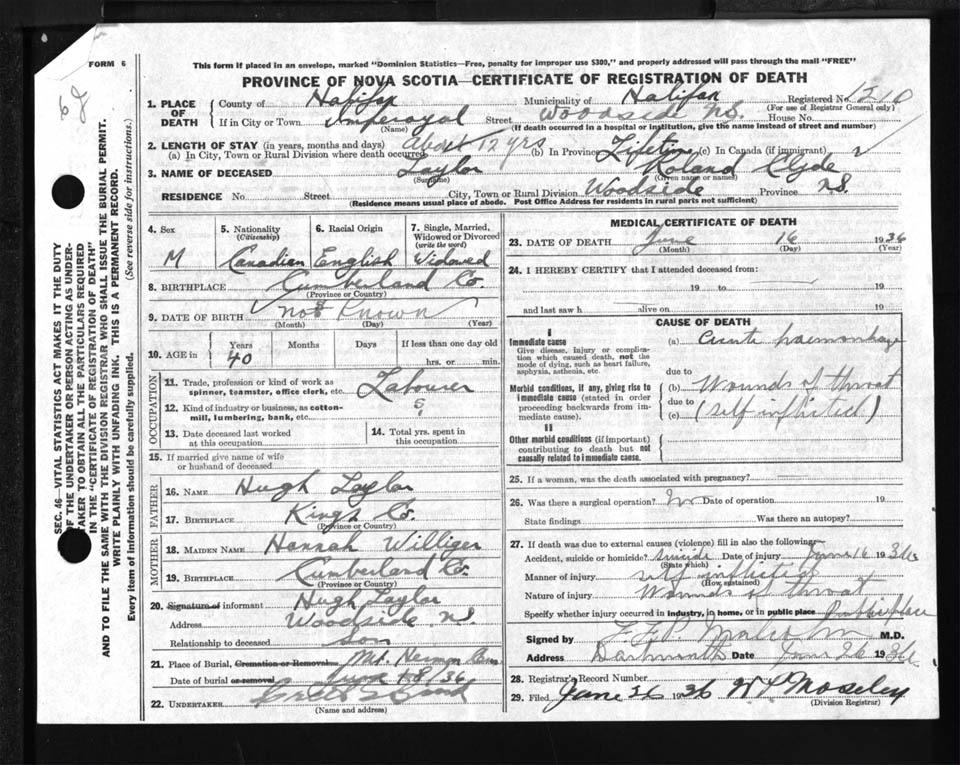 FORM 6
This form if placed in an envelope, marked "Dominion Statistics—Free, penalty for improper use $300," and properly addressed will pass through the mail "FREE"
PROVINCE OF NOVA SCOTIA—CERTIFICATE OF REGISTRATION OF DEATH
1. PLACE OF DEATH County of Halifax Municipality of Halifax Registered No.
(For use of Registrar General only)
If in City or Town Imperoyal Street Woodside N.S. House No.
(Name) (If death occurred in a hospital or institution, give the name instead of street and number)
2. LENGTH OF STAY (in years, months and days)
(a) In City, Town or Rural Division where death occurred About 12 yrs (b) In Province Lifetime (c) In Canada (if immigrant)
3. NAME OF DECEASED Taylor Roland Clyde
(Surname) (Given name or names)
RESIDENCE No Street City, Town or Rural Division Woodside Province N.S.
(Residence means usual place of abode. Post Office Address for residents in rural parts not sufficient)
4. Sex M
5. Nationality (Citizenship) Canadian
6. Racial Origin English
7. Single, Married, Widowed or Divorced (write the word) Widowed
8. BIRTHPLACE Cumberland Co.
(Province or Country)
9. DATE OF BIRTH not Known
(Month) (Day) (Year)
10. AGE in Years 40 Months Days If less than one day old hrs. or min.
OCCUPATION
11. Trade, profession or kind of work as spinner, teamster, office clerk, etc. Labourer
12. Kind of industry or business, as cotton-mill, lumbering, bank, etc.
13. Date deceased last worked at this occupation
14. Total yrs. spent in this occupation
15. If married give name of wife or husband of deceased
FATHER
16. NAME Hugh Taylor
17. BIRTHPLACE Kings Co.
(Province or Country)
MOTHER
18. MAIDEN NAME Hannah Williger
19. BIRTHPLACE Cumberland Co.
(Province or Country)
20. Signature of informant Hugh Taylor
Address Woodside N.S.
Relationship to deceased son
21. Place of Burial, Cremation or Removal Mt. Hermon
Date of burial or removal 18/36
22. UNDERTAKER
(Name and address)
MEDICAL CERTIFICATE OF DEATH
23. DATE OF DEATH June 16 1936
(Month) (Day) (Year)
24. I HEREBY CERTIFY that I attended deceased from:
19 to 19
and last saw h alive on 19
CAUSE OF DEATH
I
Immediate cause
Give disease, injury or complication which caused death, not the mode of dying, such as heart failure, asphyxia, asthenia, etc.
(a) Acute
due to
Morbid conditions, if any, giving rise to immediate cause (stated in order proceeding backwards from immediate cause).
(b) Wounds of throat
due to
(c) (self inflicted)
II
Other morbid conditions (if important) contributing to death but not causally related to immediate cause.
25. If a woman, was the death associated with pregnancy?
26. Was there a surgical operation? No Date of operation 19
State findings Was there an autopsy?
27. If death was due to external causes (violence) fill in also the following:
Accident, suicide or homicide? suicide Date of injury June 16 1936
(State which)
Manner of injury self inflicted
(How sustained)
Nature of injury Wounds of throat
Specify whether injury occurred in industry, in home, or in public place Public place
Signed by M.D.
Address Dartmouth Date June 26 1936
28. Registrar's Record Number
29. Filed June 26 1936 Moseley
(Division Registrar)
SEC. 46—VITAL STATISTICS ACT MAKES IT THE DUTY
OF THE UNDERTAKER OR PERSON ACTING AS UNDER-
TAKER TO OBTAIN ALL THE PARTICULARS REQUIRED
IN THE "CERTIFICATE OF REGISTRATION OF DEATH"
AND TO FILE THE SAME WITH THE DIVISION REGISTRAR WHO SHALL ISSUE THE BURIAL PERMIT.
WRITE PLAINLY WITH UNFADING INK. THIS IS A PERMANENT RECORD.
Every item of information should be carefully supplied. (See reverse side for instructions.)